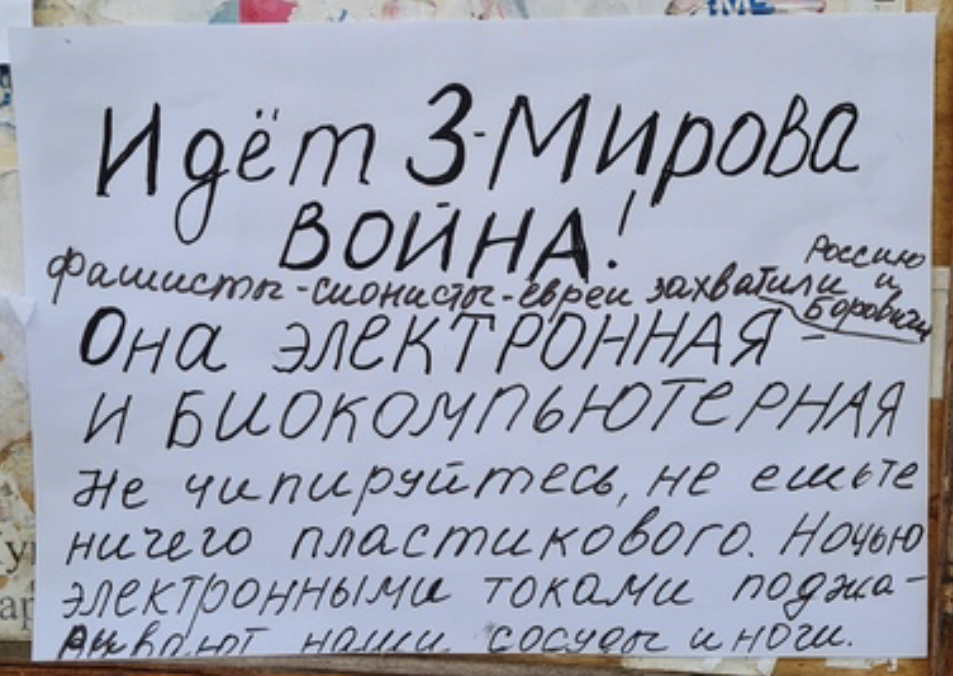 Идёт 3-Мирова
ВОЙНА!
фашисты-сионисты-евреи захватили Россию и Боровичи
Она ЭЛЕКТРОННАЯ
И БИОКОМПЬЮТЕРНАЯ
Не чипируйтесь, не ешьте
ничего пластикового. Ночью
электронными токами поджа-
ривают наши сосуды и ноги.